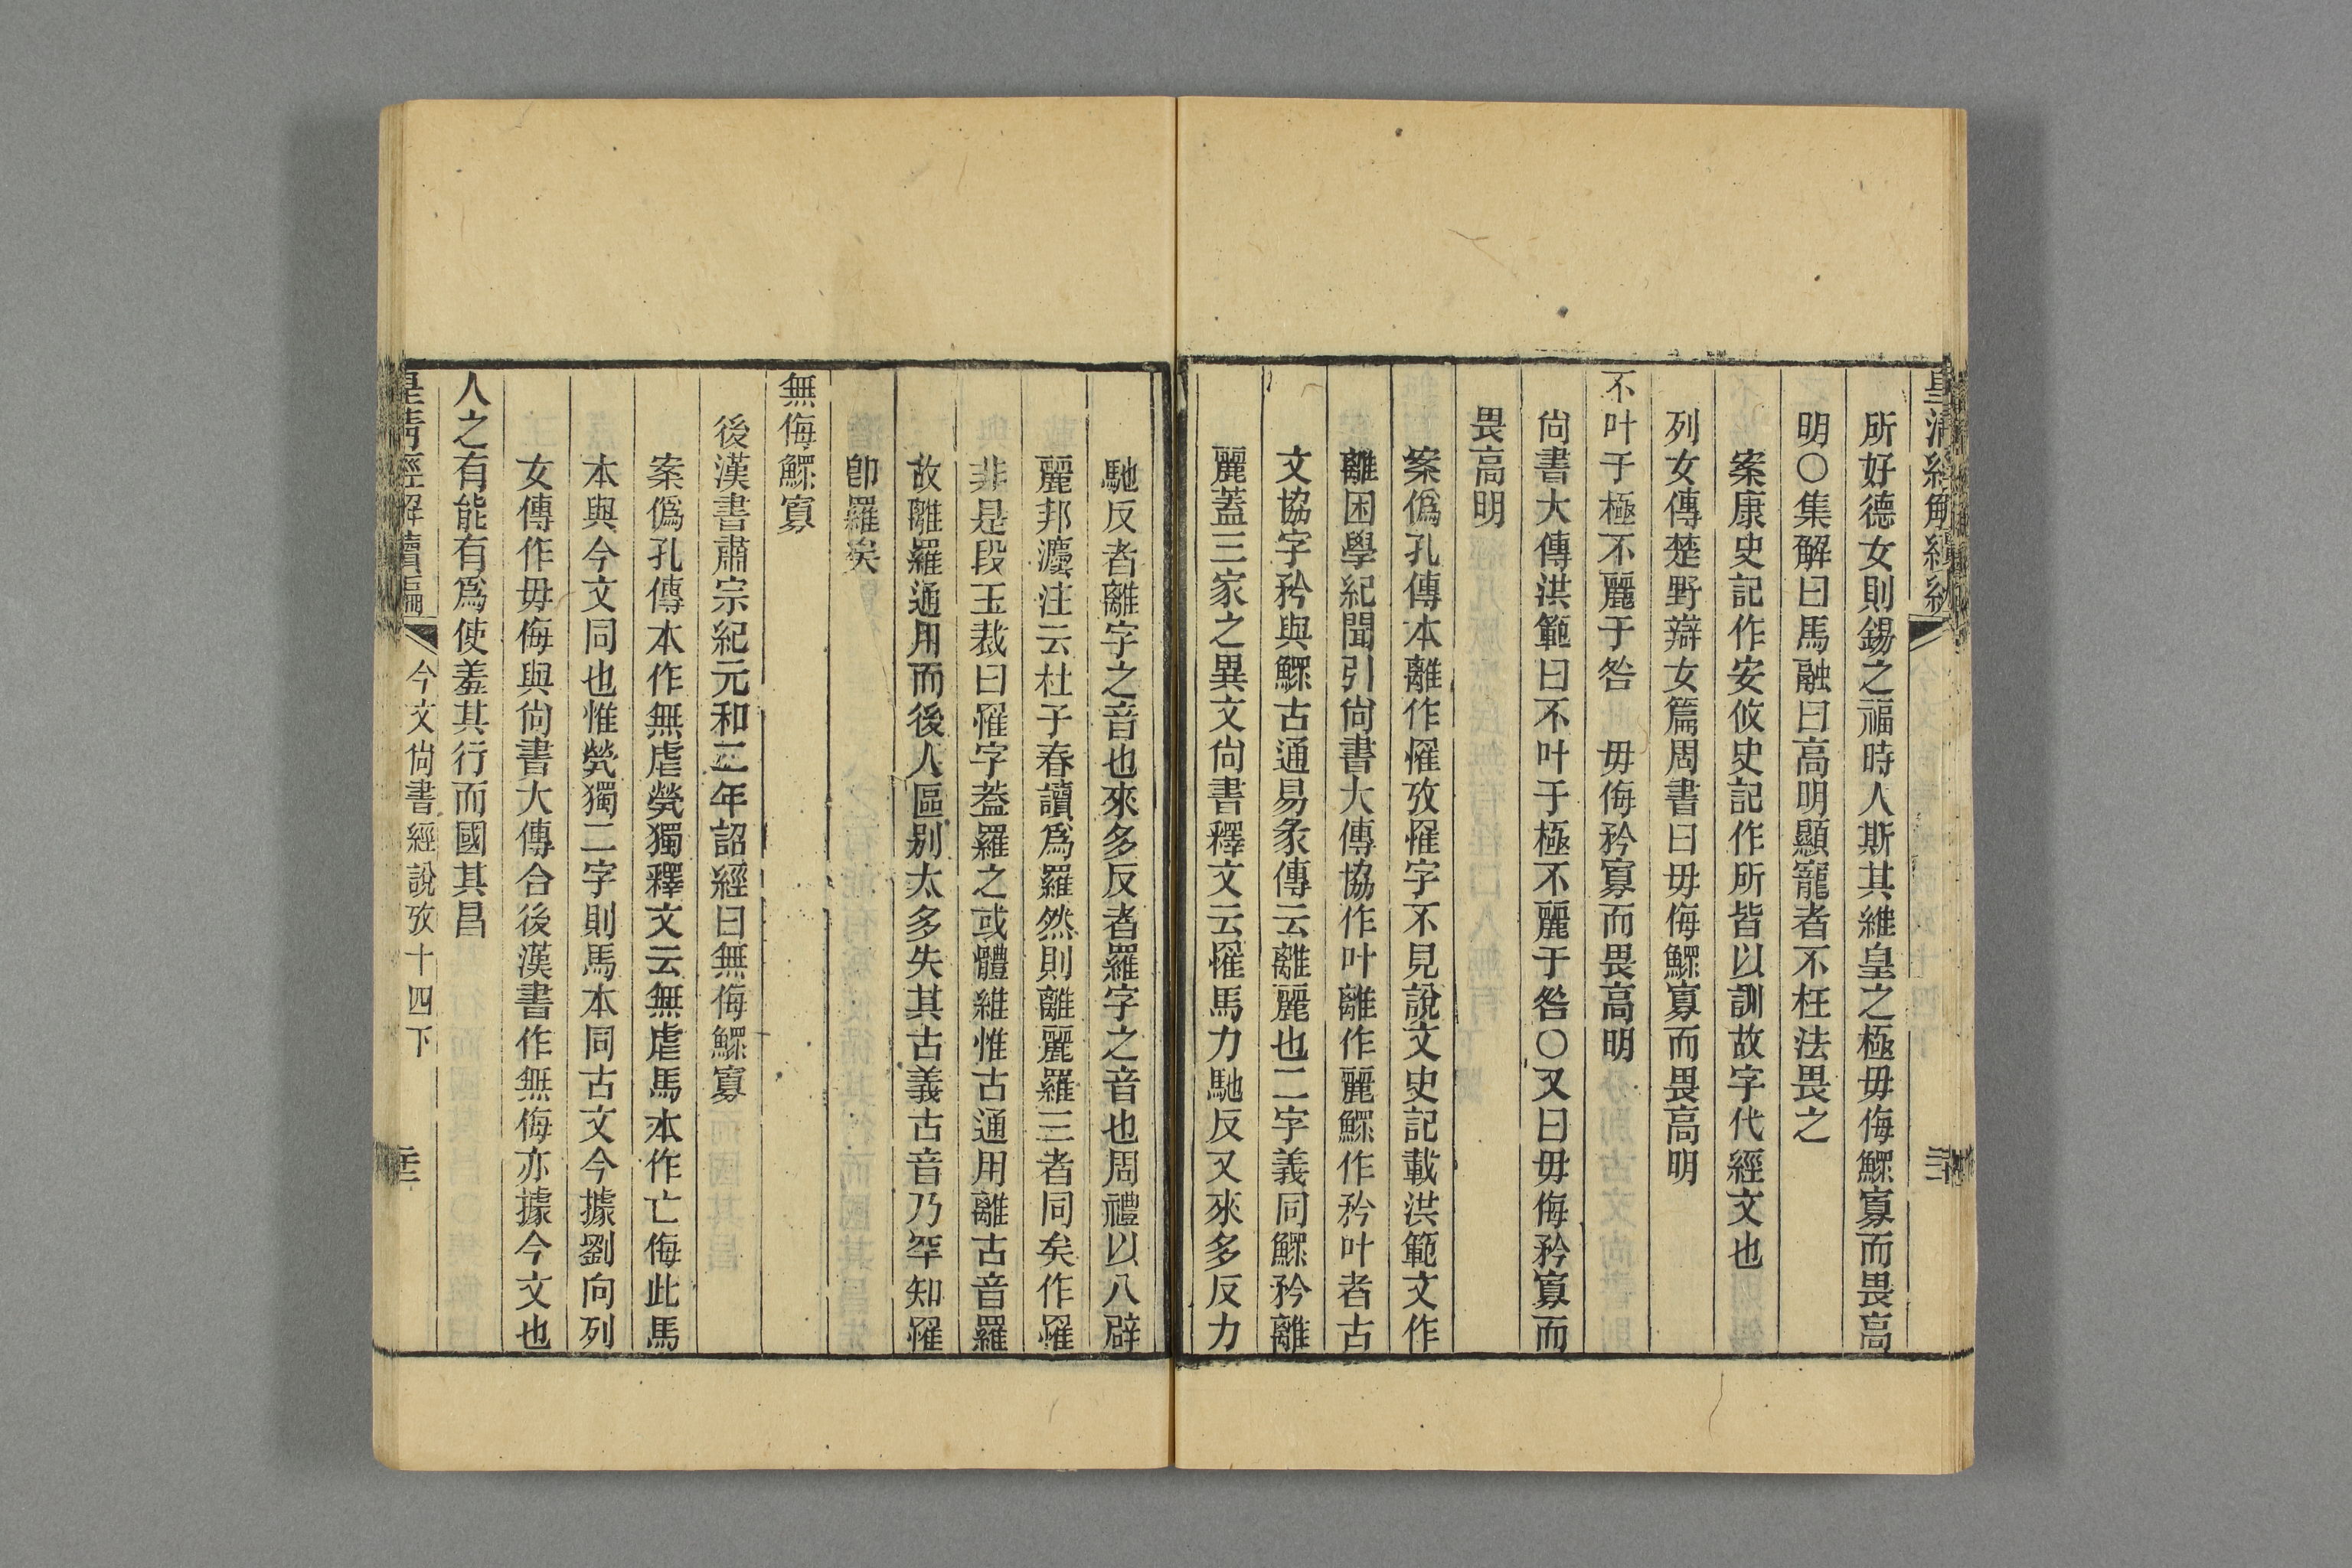 皇清經解續編
所好德女則錫之福時人斯其維皇之極毋侮鰥寡而畏高
明〇集解曰馬融曰高明顯寵者不枉法畏之
案康史記作安攸史記作所皆以訓故字代經文也
列女傳楚野辯女篇周書曰毋侮鰥寡而畏高明
不叶于極不麗于咎　毋侮矜寡而畏高明
尙書大傳洪範曰不叶于極不麗于咎〇又曰毋侮矜寡而
畏高明
案僞孔傳本離作罹攷罹字不見說文史記載洪範文作
離困學紀聞引尙書大傳協作叶離作麗鰥作矜叶者古
文協字矜與鰥古通易彖傳云離麗也二字義同鰥矜離
麗蓋三家之異文尙書釋文云罹馬力馳反又來多反力
馳反者離字之音也來多反者羅字之音也周禮以八辟
麗邦灋注云杜子春讀爲羅然則離麗羅三者同矣作罹
非是段玉裁曰罹字葢羅之或體維惟古通用離古音羅
故離羅通用而後人區别太多失其古義古音乃罕知罹
卽羅矣
無侮鰥寡
後漢書肅宗紀元和三年詔經曰無侮鰥寡
案僞孔傳本作無虐煢獨釋文云無虐馬本作亡侮此馬
本與今文同也惟煢獨二字則馬本同古文今據劉向列
女傳作毋侮與尙書大傳合後漢書作無侮亦據今文也
人之有能有爲使羞其行而國其昌
皇清經解續編　今文尙書經說攷十四下